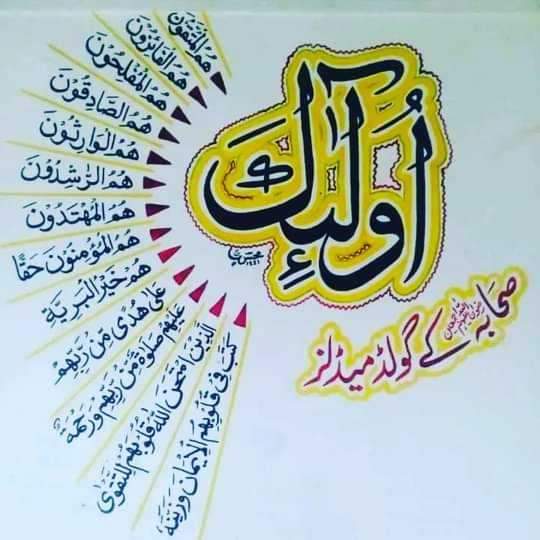 أُولَٰئِكَ
هُمُ الْمُتَّقُونَ
هُمُ الْفَائِزُونَ
هُمُ الْمُفْلِحُونَ
هُمُ الصَّادِقُونَ
هُمُ الْوَارِثُونَ
هُمُ الرّٰشِدُونَ
هُمُ الْمُهْتَدُونَ
هُمُ الْمُؤْمِنُونَ حَقًّا
هُمْ خَيْرُ الْبَرِيَّةِ
عَلٰى هُدًى مِّنْ رَّبِّهِمْ
عَلَيْهِمْ صَلَوٰةٌ مِّنْ رَّبِّهِمْ وَرَحْمَةٌ
الَّذِيْنَ امْتَحَنَ اللّٰهُ قُلُوْبَهُمْ لِلتَّقْوٰى
كَتَبَ فِيْ قُلُوْبِهِمُ الْاِيْمَانَ وَزَيَّنَهٗ
صحابہ کے گولڈ میڈلز